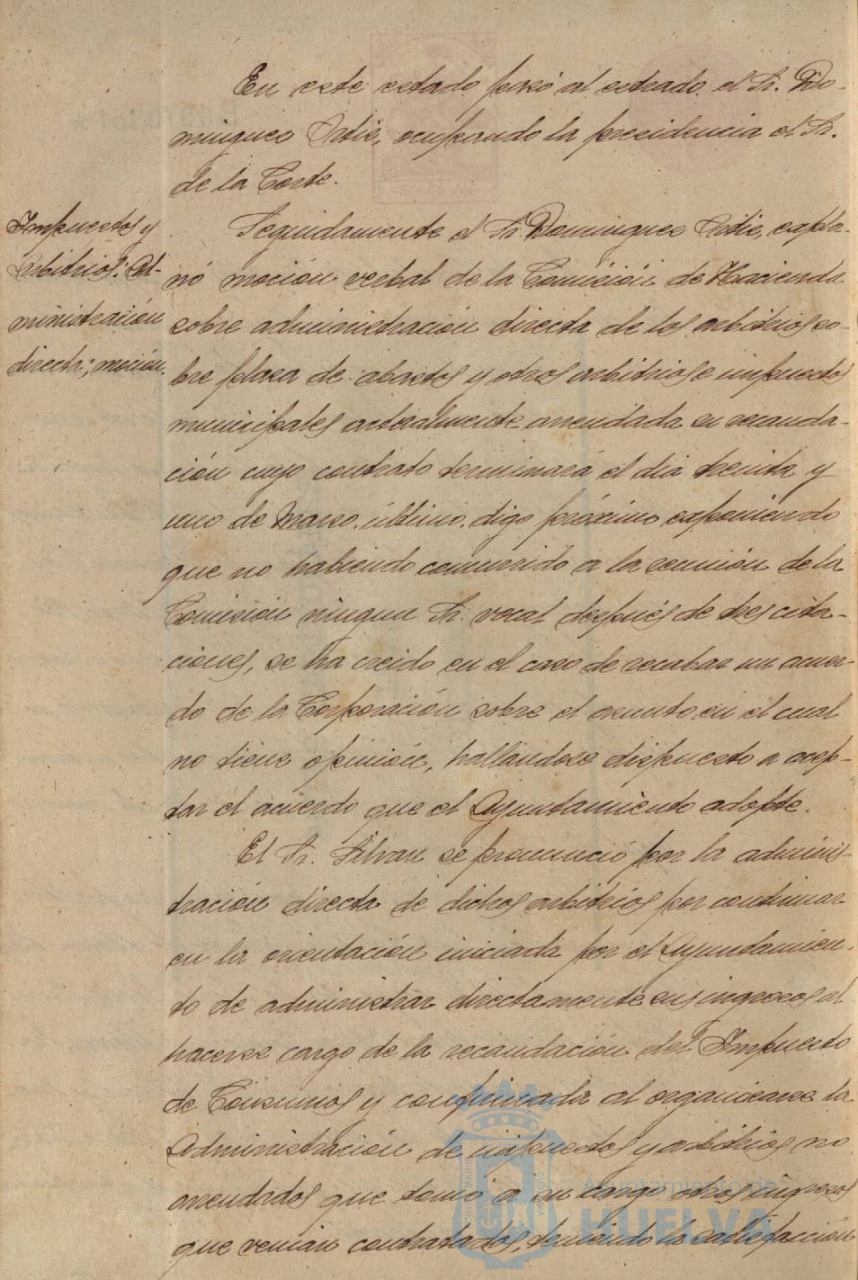 En este estado pasó al estrado el Sr. Do-
minguez Ortiz, ocupando la presidencia el Sr.
de la Corte.
Impuestos y
arbitrios: Ad-
ministración
directa; moción.
Seguidamente el Sr. Dominguez Ortiz, expla-
nó moción verbal de la Comisión de Hacienda
sobre administración directa de los arbitrios so-
bre plaza de abastos y otros arbitrios e impuestos
municipales actualmente arrendada su recauda-
ción cuyo contrato terminará el dia treinta y
uno de Marzo último, digo próximo exponiendo
que no habiendo concurrido a la reunión de la
Comisión ningun Sr. vocal después de tres cita-
ciones, se ha creido en el caso de recabar un acuer-
do de la Corporación sobre el asunto en el cual
no tiene opinión, hallandose dispuesto a acep-
tar el acuerdo que el Ayuntamiento adopte.
El Sr. Silvan se pronunció por la adminis-
tración directa de dichos arbitrios por continuar
en la orientación iniciada por el Ayuntamien-
to de administrar directamente sus ingresos al
hacerse cargo de la recaudación del Impuesto
de Consumos y confirmada al organizarse la
Administración de impuestos y arbitrios no
arrendados que tomó a su cargo otros ingresos
que venian contratados, teniendo la satisfacción
Ayuntamiento de
HUELVA